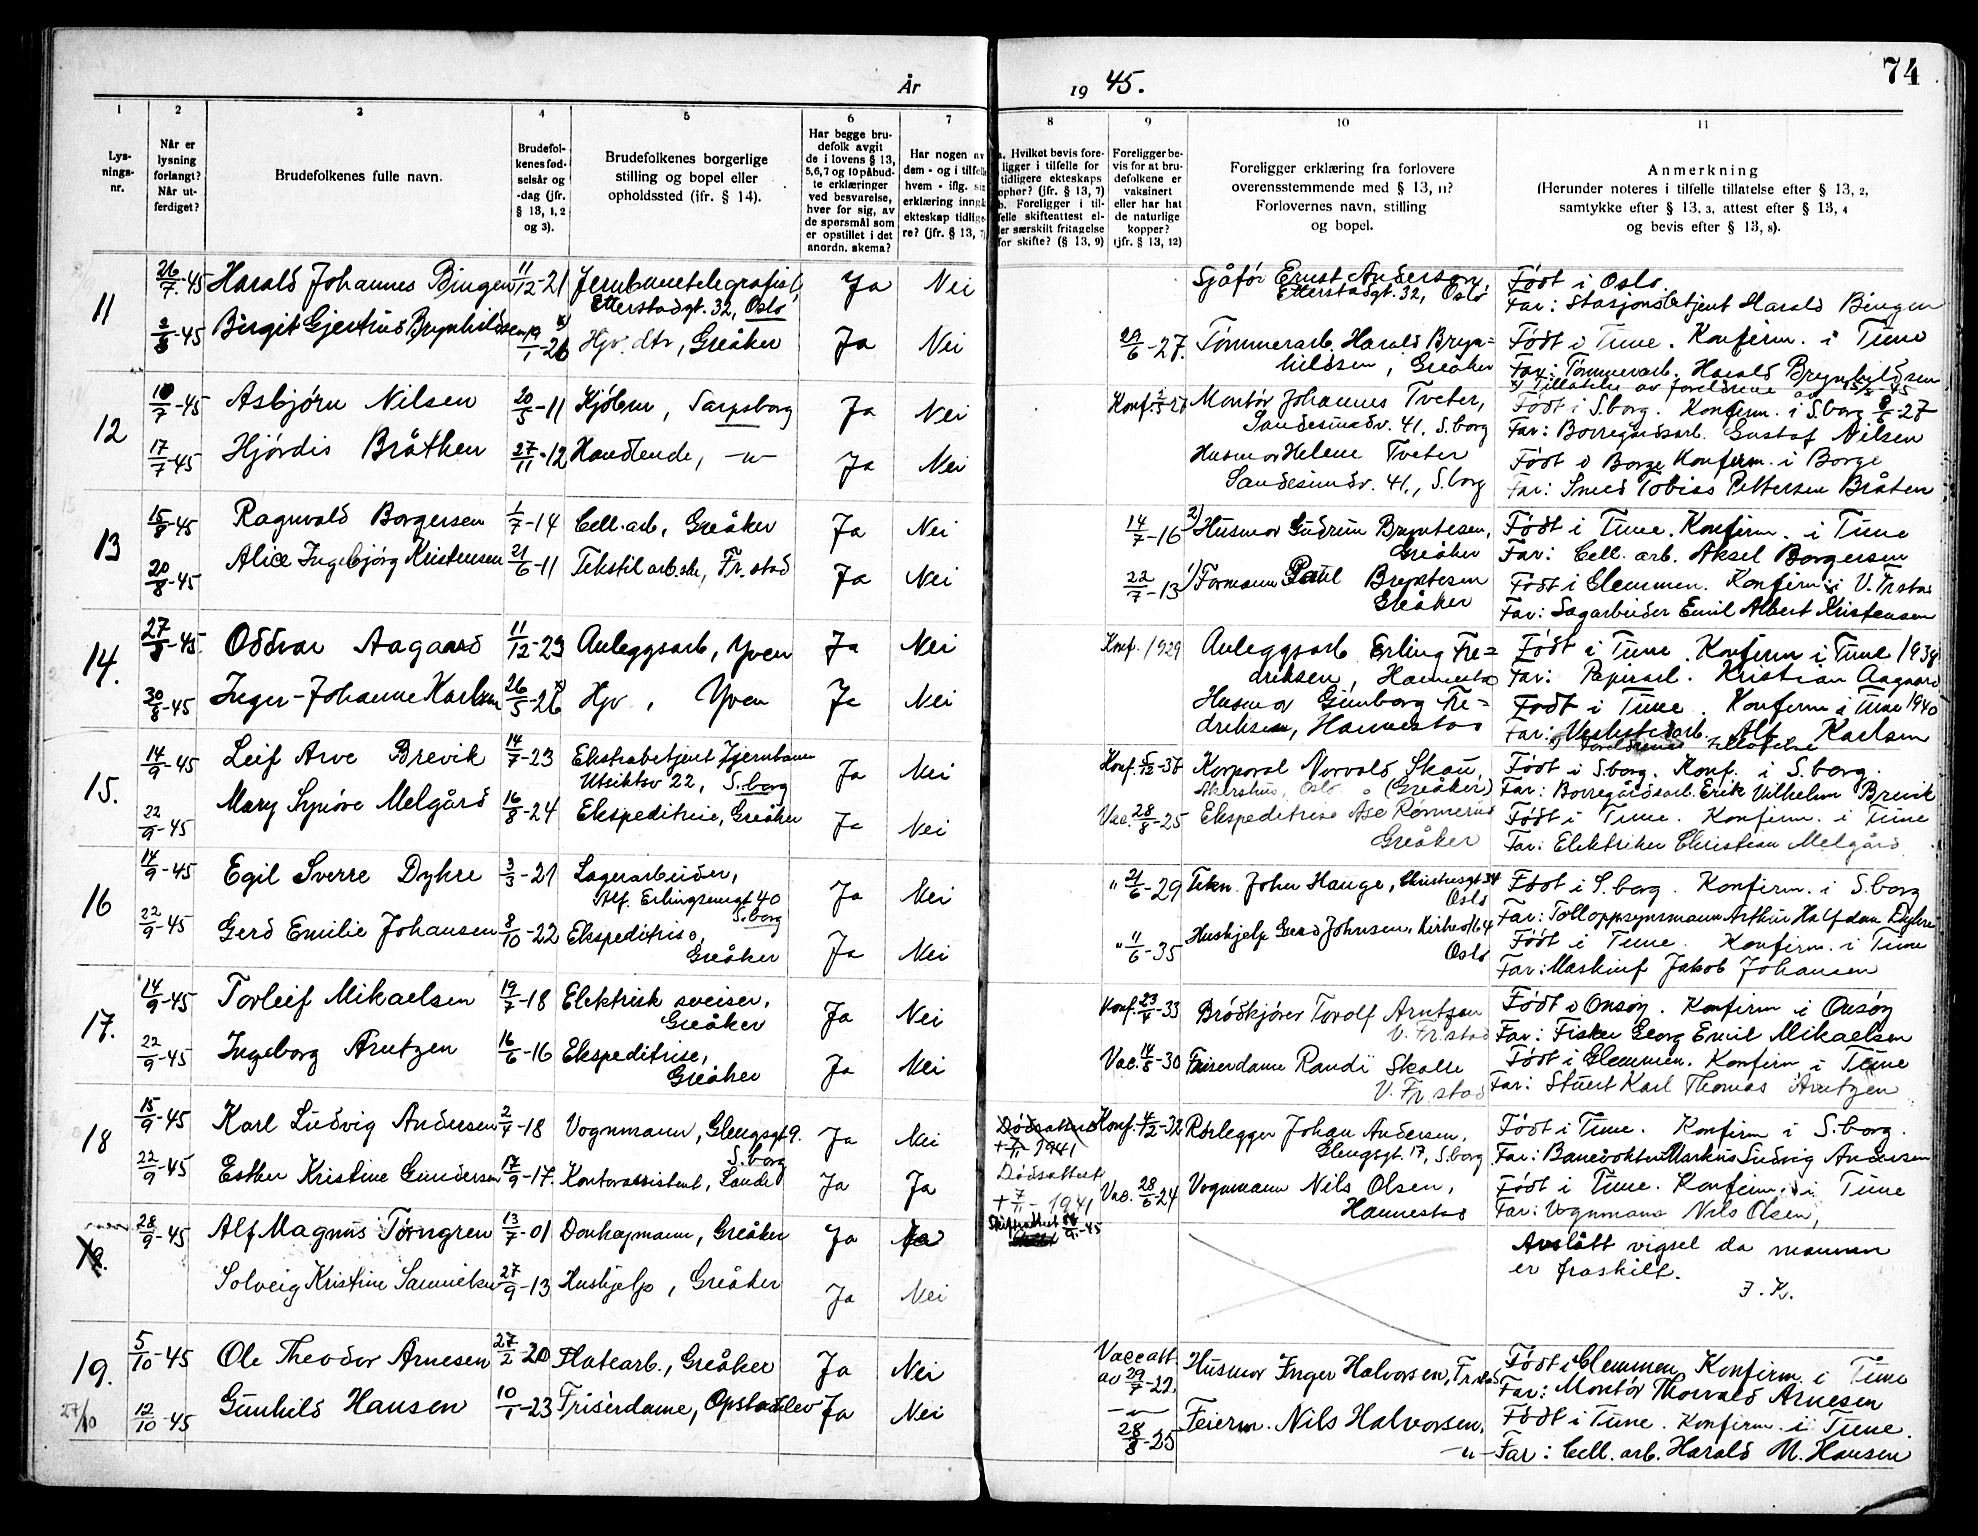 74
År 19 45.
1 2 3 4 5 6 7 8 9 10 11
Lys-
nings-
nr.
Når er
lysning
forlangt?
Når ut-
ferdiget?
Brudefolkenes fulle navn.
Brudefol-
kenes fød-
selsår og
-dag (jfr.
§ 13, 1, 2
og 3).
Brudefolkenes borgerlige
stilling og bopel eller
opholdssted (jfr. § 14).
Har begge bru-
defolk avgit
de i lovens § 13,
5,6,7 og 10 påbud-
te erklæringer
ved besvarelse,
hver for sig, av
de spørsmål som
er opstillet i det
anordn. skema?
Har nogen av
dem - og i tilfelle
hvem - iflg. sin
erklæring inngå
ekteskap tidlige-
re? (jfr. § 13, 7)
a. Hvilket bevis fore-
ligger i tilfelle for
tidligere ekteskaps
ophør? (jfr. § 13, 7)
b. Foreligger i til-
felle skifteattest el-
ler særskilt fritagelse
for skifte? (§ 13, 9)
Foreligger be-
vis for at bru-
defolkene er
vaksinert
eller har hat
de naturlige
kopper?
(jfr. § 13, 12)
Foreligger erklæring fra forlovere
overensstemmende med § 13, 11?
Forlovernes navn, stilling
og bopel.
Anmerkning
(Herunder noteres i tilfelle tillatelse efter § 13, 2,
samtykke efter § 13, 3, attest efter § 13, 4
og bevis efter § 13, 8).
11
26/7-45 Harald Johannes Bingen 11/12-21 Jernbanetelegrafist, Ja Nei Sjåfør Ernst Anderson, Født i Oslo
Etterstadgt. 32, Oslo Etterstadgt. 32, Oslo Far: Stasjonsbetjent Harald Bingen
2/8-45 Birgit Gjertrud Brynhildsen 19/1-26 x) Hjv. dtr, Greåker Ja Nei 29/6-27. Tømmerarb. Harald Bryn= Født i Tune. Konfirm. i Tune
hildsen, Greåker Far: Tømmerarb. Harald Brynhildsen
x) Tillatelse av foreldrene
12
10/7-45 Asbjørn Nilsen 20/5-11 Kjøbm, Sarpsborg Ja Nei Konf. Montør Johannes Tveter, Født i S.borg. Konfirm. i S.borg -27
Sandesundv. 41, S.borg Far: Borregårdsarb. Gustaf Nilsen
17/7-45 Hjørdis Bråthen 27/11-12 Handlende, -"- Ja Nei Husmor Helene Tveter Født i Borge Konfirm. i Borge
Sandesundv. 41., S.borg Far: Smed Tobias Pettersen Bråten
13
15/8-45 Ragnvald Borgersen 1/7-14 Cell.arb, Greåker Ja Nei 14/7-16 2) Husmor Gudrun Bryntesen, Født i Tune. Konfirm. i Tune
Greåker Far: Cell. arb. Aksel Borgersen
20/8-45 Alice Ingebjørg Kristensen 21/6-11 Tekstilarb.ske, Fr.stad Ja Nei 22/7-13 1) Formann Paul Bryntesen Født i Glemmen. Konfirm i V. Fr.stad
Greåker Far: Sagarbeider Emil Albert Kristensen
14.
27/8-45. Oddvar Aagaard 11/12-23 Anleggsarb, Yven Ja Nei Konf. 1929 Anleggsarb Erling Fre= Født i Tune. Konfirm i Tune 1938
driksen, Hannestad Far: Papirarb. Kristian Aagaard
30/8-45 Inger-Johanne Karlsen 26/5-26 x) Hjv, Yven Ja Nei Husmor Gunborg Fre= Født i Tune. Konfirm i Tune 1940
driksen, Hannestad Far: Verkstedarb. Alf Karlsen
x) Foreldrenes tillatelse
15.
14/9-45 Leif Arve Brevik 14/7-23 Ekstrabetjent Jernbanen Ja Nei Konf. 5/12-37 Korporal Norvald Skau, Født i S.borg. Konf. i S.borg.
Utsiktsv 22, S.borg Akershus, Oslo (Greåker) Far: Borregårdsarb. Erik Vilhelm Brevik
22/9-45 Mary Synøve Melgård 16/8-24 Ekspeditrise, Greåker Ja Nei Vac. 28/8-25 Ekspeditrise Åse Rønnerud Født i Tune. Konfirm. i Tune
Greåker Far: Elektriker Christian Melgård
16
14/9-45 Egil Sverre Dyhre 3/3-21 Lagerarbeider, Ja Nei " 21/6-29 Tekn. John Hauge, Christiesgt 34 Født i S.borg. Konfirm. i S.borg
Alf. Erlingsensgt 40 S.borg Oslo Far: Tolloppsynsmann Arthur Halfdan Dyhre
22/9-45 Gerd Emilie Johansen 8/10-22 Ekspeditrise, Ja Nei " 11/6-35 Hushjelp Gerd Johnsen, Født i Tune. Konfirm. i Tune
Greåker Oslo Far: Maskinf Jakob Johansen
17.
14/9-45 Torleif Mikaelsen 19/7-18 Elektrisk sveiser, Ja Nei Konf. 23/4-33 Brødkjører Torolf Arntzen Født i Onsøy. Konfirm i Onsøy
Greåker V. Fr.stad Far: Fisker Georg Emil Mikaelsen
22/9-45 Ingeborg Arntzen 16/6-16 Ekspeditrise, Ja Nei Vac. 14/8-30 Friserdame Randi Skolle Født i Glemmen. Konfirm i Tune
Greåker V. Fr.stad Far: Stuert Karl Thomas Arntzen
18
15/9-45 Karl Ludvig Andersen 2/7-18 Vognmann, Glengsgt 9. Ja Nei Dødsattest Konf. 4/12-32 Rørlegger Johan Andersen, Født i Tune. Konfirm i S.borg.
S.borg + 1941 Glengsgt. 17, S.borg Far: Banevokter Markus Ludvig Andersen
22/9-45 Esther Kristine Gundersen 17/9-17. Kontorassistent, Sande Ja Ja Dødsattest Vac. 28/6-24 Vognmann Nils Olsen, Født i Tune. Konfirm. i Tune
+ 7/11-1941 Hannestad Far: Vognmann Nils Olsen,
Skifteattest -45
19.
28/9-45 Alf Magnus Tørngren 13/7-01 Donkeymann, Greåker Ja Ja Avslått vigsel da mannen
er fraskilt.
Solveig Kristine Samuelsen 27/9-13 Hushjelp, Greåker Ja Nei J. K.
19.
5/10-45 Ole Theodor Arnesen 27/2-20 Platearb., Greåker Ja Nei Vacc att. Husmor Inger Halvorsen, Fr.stad Født i Glemmen Konfirm. i Tune
av 29/7-22. Far: Montør Thorvald Arnesen
27/10
12/10-45 Gunhild Hansen 10/1-23 Friserdame, Opstadslev Ja Nei -"- 28/8-25 Feierm. Nils Halvorsen, Født i Tune. Konfirm. i Tune.
-"- Far: Cell. arb. Harald M. Hansen